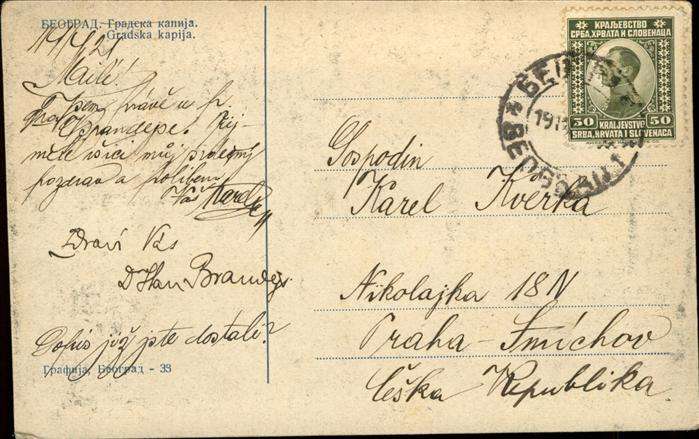 БЕОГРАД. Градска капија.
Gradska kapija.
Milí!
právě u
Brandepe.
můj srdečný
pozdrav a políbení
Váš Karel
Zdraví Vás
Brandejs
Dopis již jste dostali?
Графија, Београд - 33
КРАЉЕВСТВО
СРБА, ХРВАТА И СЛОВЕНАЦА
50 50
KRALJEVSTVO
SRBA, HRVATA I SLOVENACA
Gospodin
Karel Kverka
Nikolajka 18 N
Praha - Smíchov
Češka Republika.